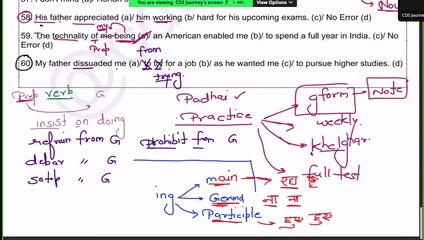 You are viewing CDS Journey's screen
View Options
58. His father appreciated (a)/ him working (b/ hard for his upcoming exams. (c)/ No Error (d)
my
59. The technality of me being (a)/ an American enabled me (b)/ to spend a full year in India. (c)/ No
Error (d)
Prep
from
60. My father dissuaded me (a)/ for a job (b)/ as he wanted me (c)/ to pursue higher studies. (d)
Prep verb G
insist on doing
refrain from G
debar " G
Padhai
Practice
prohibit from G
gform
Note
weekly
Khel
full test
ing
main → रहा है
Gerund ना ना
Participle